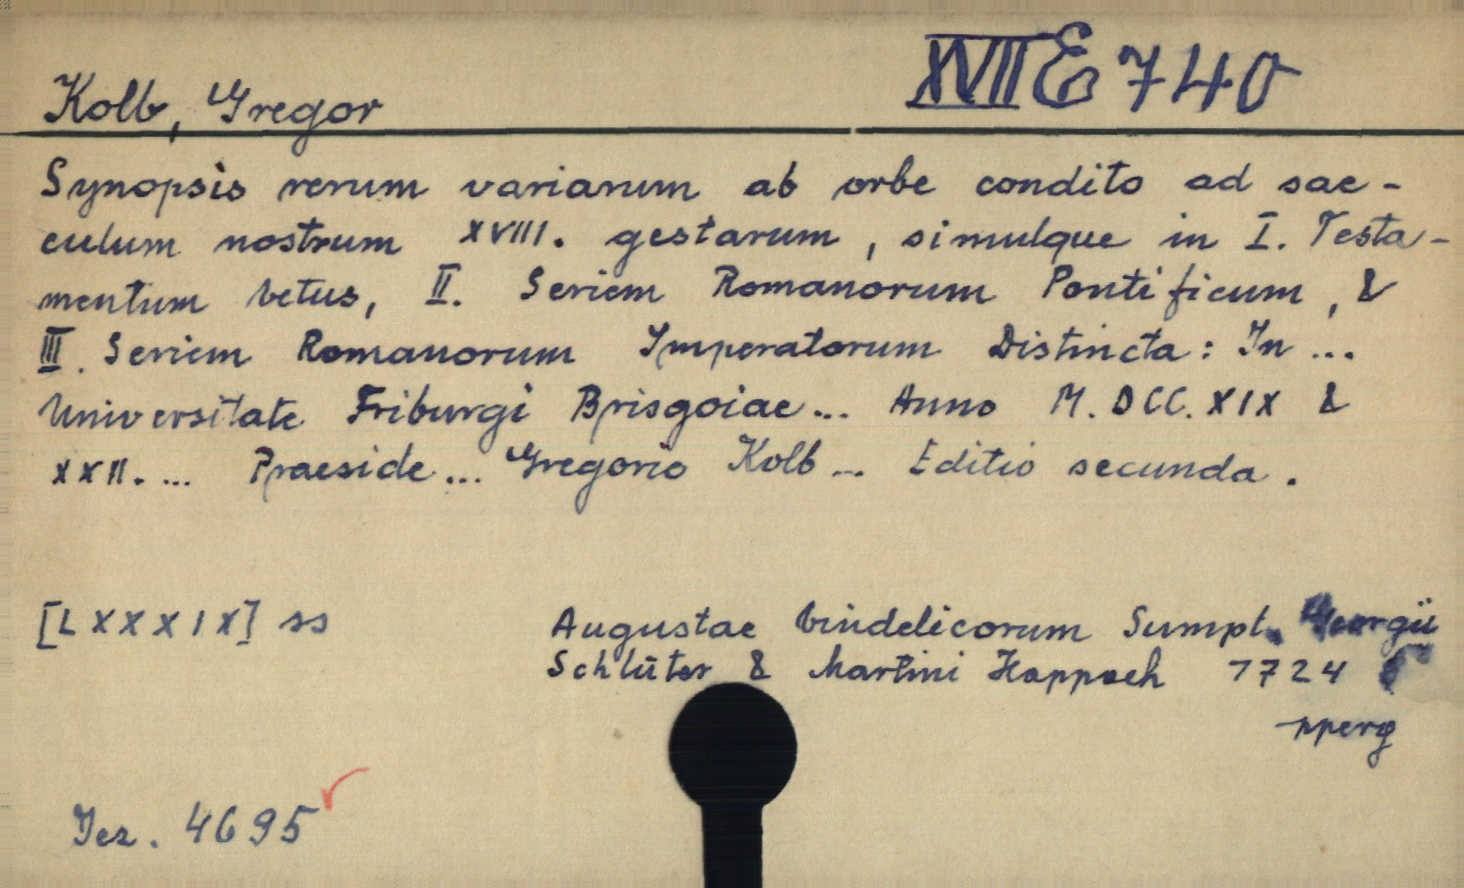 XVII E 740
Kolb, Gregor
Synopsis rerum variarum ab orbe condito ad sae-
culum nostrum XVIII. gestarum, simulque in I. Testa-
mentum vetus, II. Seriem Romanorum Pontificum, &
III. Seriem Romanorum Imperatorum Distincta: In ...
Universitate Friburgi Brisgoiae... Anno M.DCC.XIX &
XXII. ... Praeside... Gregorio Kolb... Editio secunda.
[LXXXIX] ss
Augustae Vindelicorum Sumpt. Georgii
Schlüter & Martini Happach 1724
pperg
Jez. 4695